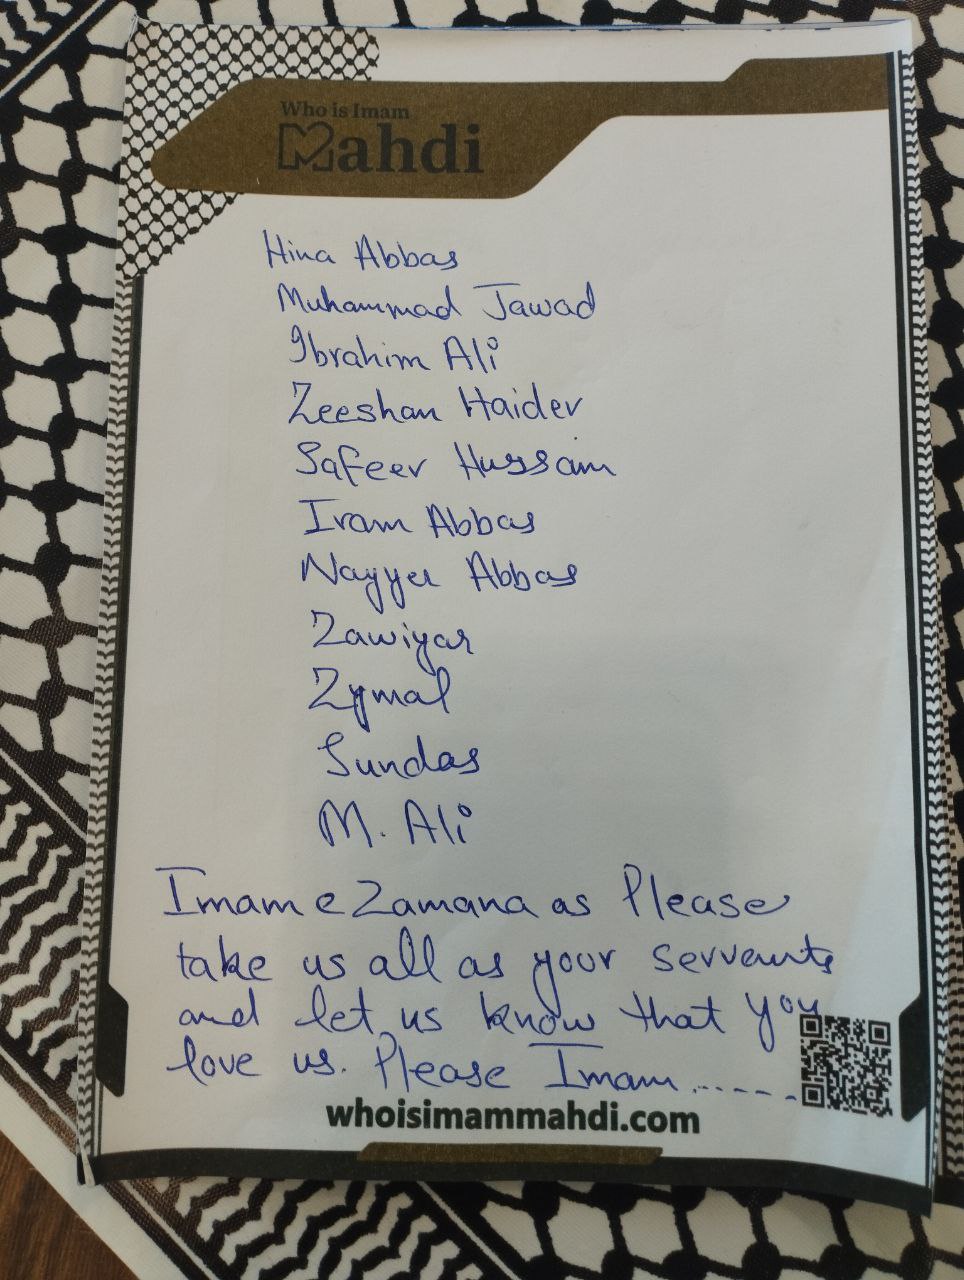 Who is Imam
Mahdi
Hina Abbas
Muhammad Jawad
Ibrahim Ali
Zeeshan Haider
Safeer Hussain
Iram Abbas
Nayyer Abbas
Zawiyar
Zymal
Sundas
M. Ali
Imam e Zamana as Please
take us all as your servants
and let us know that you
love us. Please Imam......
whoisimammahdi.com